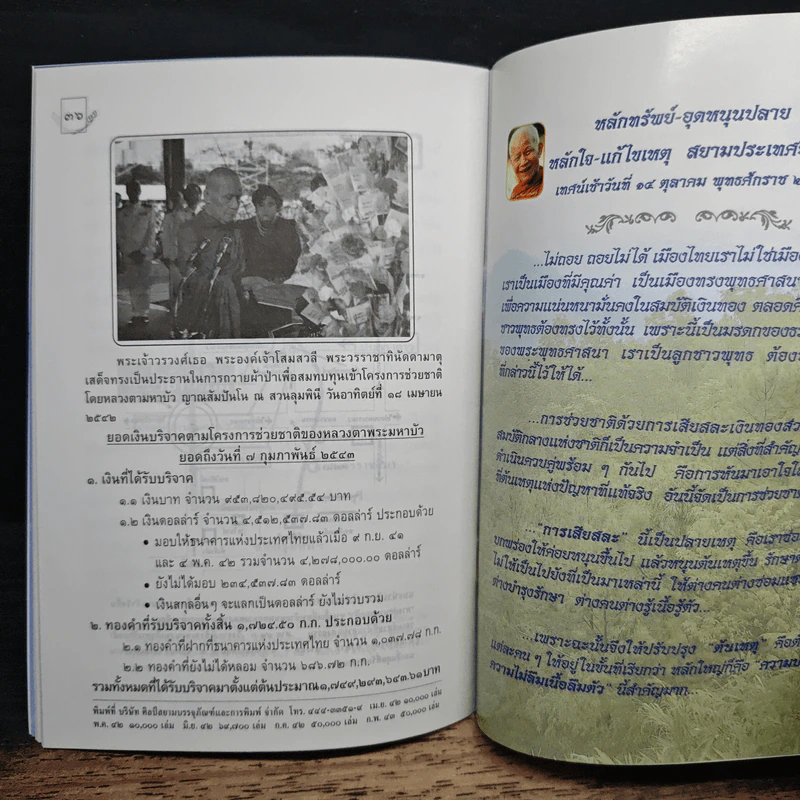 ๓๖
พระเจ้าวรวงศ์เธอ พระองค์เจ้าโสมสวลี พระวรราชาทินัดดามาตุ
เสด็จทรงเป็นประธานในการถวายผ้าป่าเพื่อสมทบทุนเข้าโครงการช่วยชาติ
โดยหลวงตามหาบัว ญาณสัมปันโน ณ สวนลุมพินี วันอาทิตย์ที่ ๑๘ เมษายน
๒๕๔๒
ยอดเงินบริจาคตามโครงการช่วยชาติของหลวงตาพระมหาบัว
ยอดถึงวันที่ ๗ กุมภาพันธ์ ๒๕๔๓
๑. เงินที่ได้รับบริจาค
๑.๑ เงินบาท จำนวน ๙๕๓,๘๒๐,๔๙๕.๕๔ บาท
๑.๒ เงินดอลล่าร์ จำนวน ๔,๕๑๒,๕๓๗.๘๓ ดอลล่าร์ ประกอบด้วย
• มอบให้ธนาคารแห่งประเทศไทยแล้วเมื่อ ๙ ก.ย. ๔๑
และ ๔ พ.ค. ๔๒ รวมจำนวน ๔,๒๗๘,๐๐๐.๐๐ ดอลล่าร์
• ยังไม่ได้มอบ ๒๓๔,๕๓๗.๘๓ ดอลล่าร์
• เงินสกุลอื่นๆ จะแลกเป็นดอลล่าร์ ยังไม่รวบรวม
๒. ทองคำที่รับบริจาคทั้งสิ้น ๑,๗๒๔.๕๐ ก.ก. ประกอบด้วย
๒.๑ ทองคำที่ฝากที่ธนาคารแห่งประเทศไทย จำนวน ๑,๐๓๗.๗๘ ก.ก.
๒.๒ ทองคำที่ยังไม่ได้หลอม จำนวน ๖๘๖.๗๒ ก.ก.
รวมทั้งหมดที่ได้รับบริจาคมาตั้งแต่ต้นประมาณ๑,๗๔๙,๒๙๓,๖๔๓.๖๑บาท
พิมพ์ที่ บริษัท ศิลป์สยามบรรจุภัณฑ์และการพิมพ์ จำกัด โทร. ๔๔๔-๓๓๕๑-๙ เม.ย. ๔๒ ๑๐,๐๐๐ เล่ม
พ.ค. ๔๒ ๑๐,๐๐๐ เล่ม มิ.ย. ๔๒ ๖๙,๗๐๐ เล่ม ก.ค. ๔๒ ๕๐,๐๐๐ เล่ม ก.พ. ๔๓ ๕๐,๐๐๐ เล่ม
หลักทรัพย์-อุดหนุนปลาย
หลักใจ-แก้ไขเหตุ สยามประเทศ
เทศน์เช้าวันที่ ๑๔ ตุลาคม พุทธศักราช ๒
...ไม่ถอย ถอยไม่ได้ เมืองไทยเราไม่ใช่เมือง
เราเป็นเมืองที่มีคุณค่า เป็นเมืองทรงพุทธศาสนา
เพื่อความแน่นหนามั่นคงในสมบัติเงินทอง ตลอด
ชาวพุทธต้องทรงไว้ทั้งนั้น เพราะนี้เป็นมรดกของ
ของพระพุทธศาสนา เราเป็นลูกชาวพุทธ ต้อง
ที่กล่าวนี้ไว้ให้ได้...
...การช่วยชาติด้วยการเสียสละเงินทอง
สมบัติกลางแห่งชาติก็เป็นความจำเป็น แต่สิ่งที่สำคัญ
ดำเนินควบคู่พร้อม ๆ กันไป คือการหันมาเอาใจ
ที่ต้นเหตุแห่งปัญหาที่แท้จริง อันนี้จัดเป็นการช่วย
..."การเสียสละ" นี้เป็นปลายเหตุ คือเรา
บกพร่องให้ค่อยหนุนขึ้นไป แล้วหนุนต้นเหตุขึ้น รักษา
ไม่ให้เป็นไปยังที่เป็นมาเหล่านี้ ให้ต่างคนต่างซ่อมแซม
ต่างบำรุงรักษา ต่างคนต่างรู้เนื้อรู้ตัว...
...เพราะฉะนั้นจึงให้ปรับปรุง "ต้นเหตุ" คือ
แต่ละคน ๆ ให้อยู่ในขั้นที่เรียกว่า หลักใหญ่ก็คือ
ความไม่ลืมเนื้อลืมตัว" นี้สำคัญมาก...